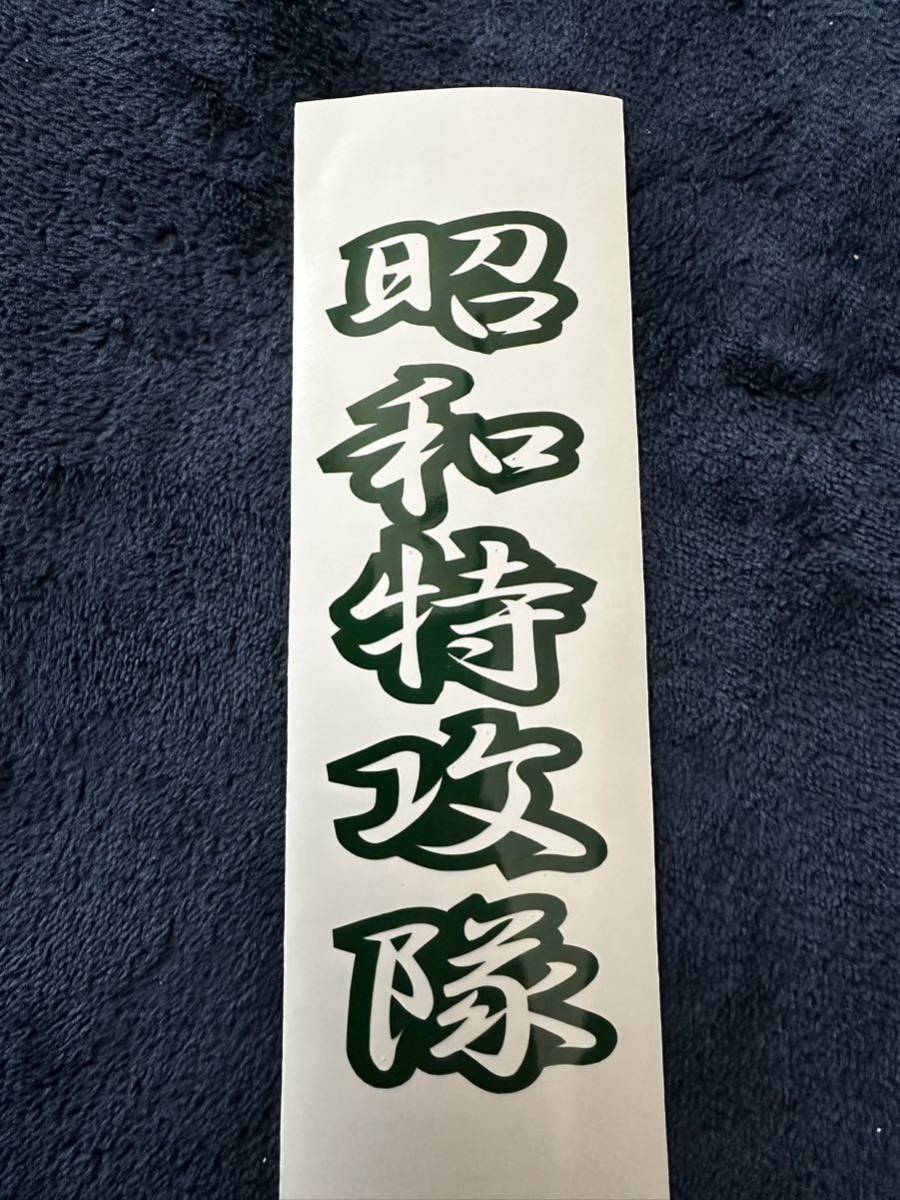 昭和特攻隊